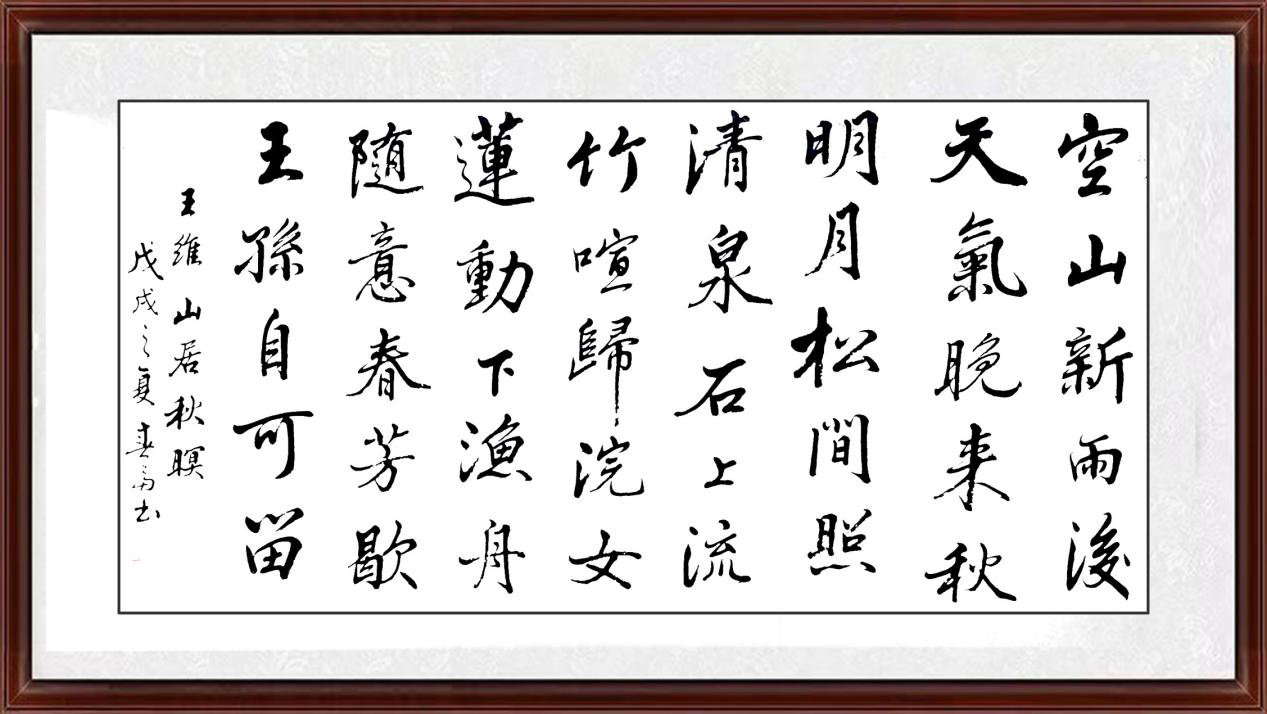 空山新雨後
天氣晚来秋
明月松間照
清泉石上流
竹喧歸浣女
蓮動下漁舟
随意春芳歇
王孫自可留
王維山居秋暝
戊戌之夏春